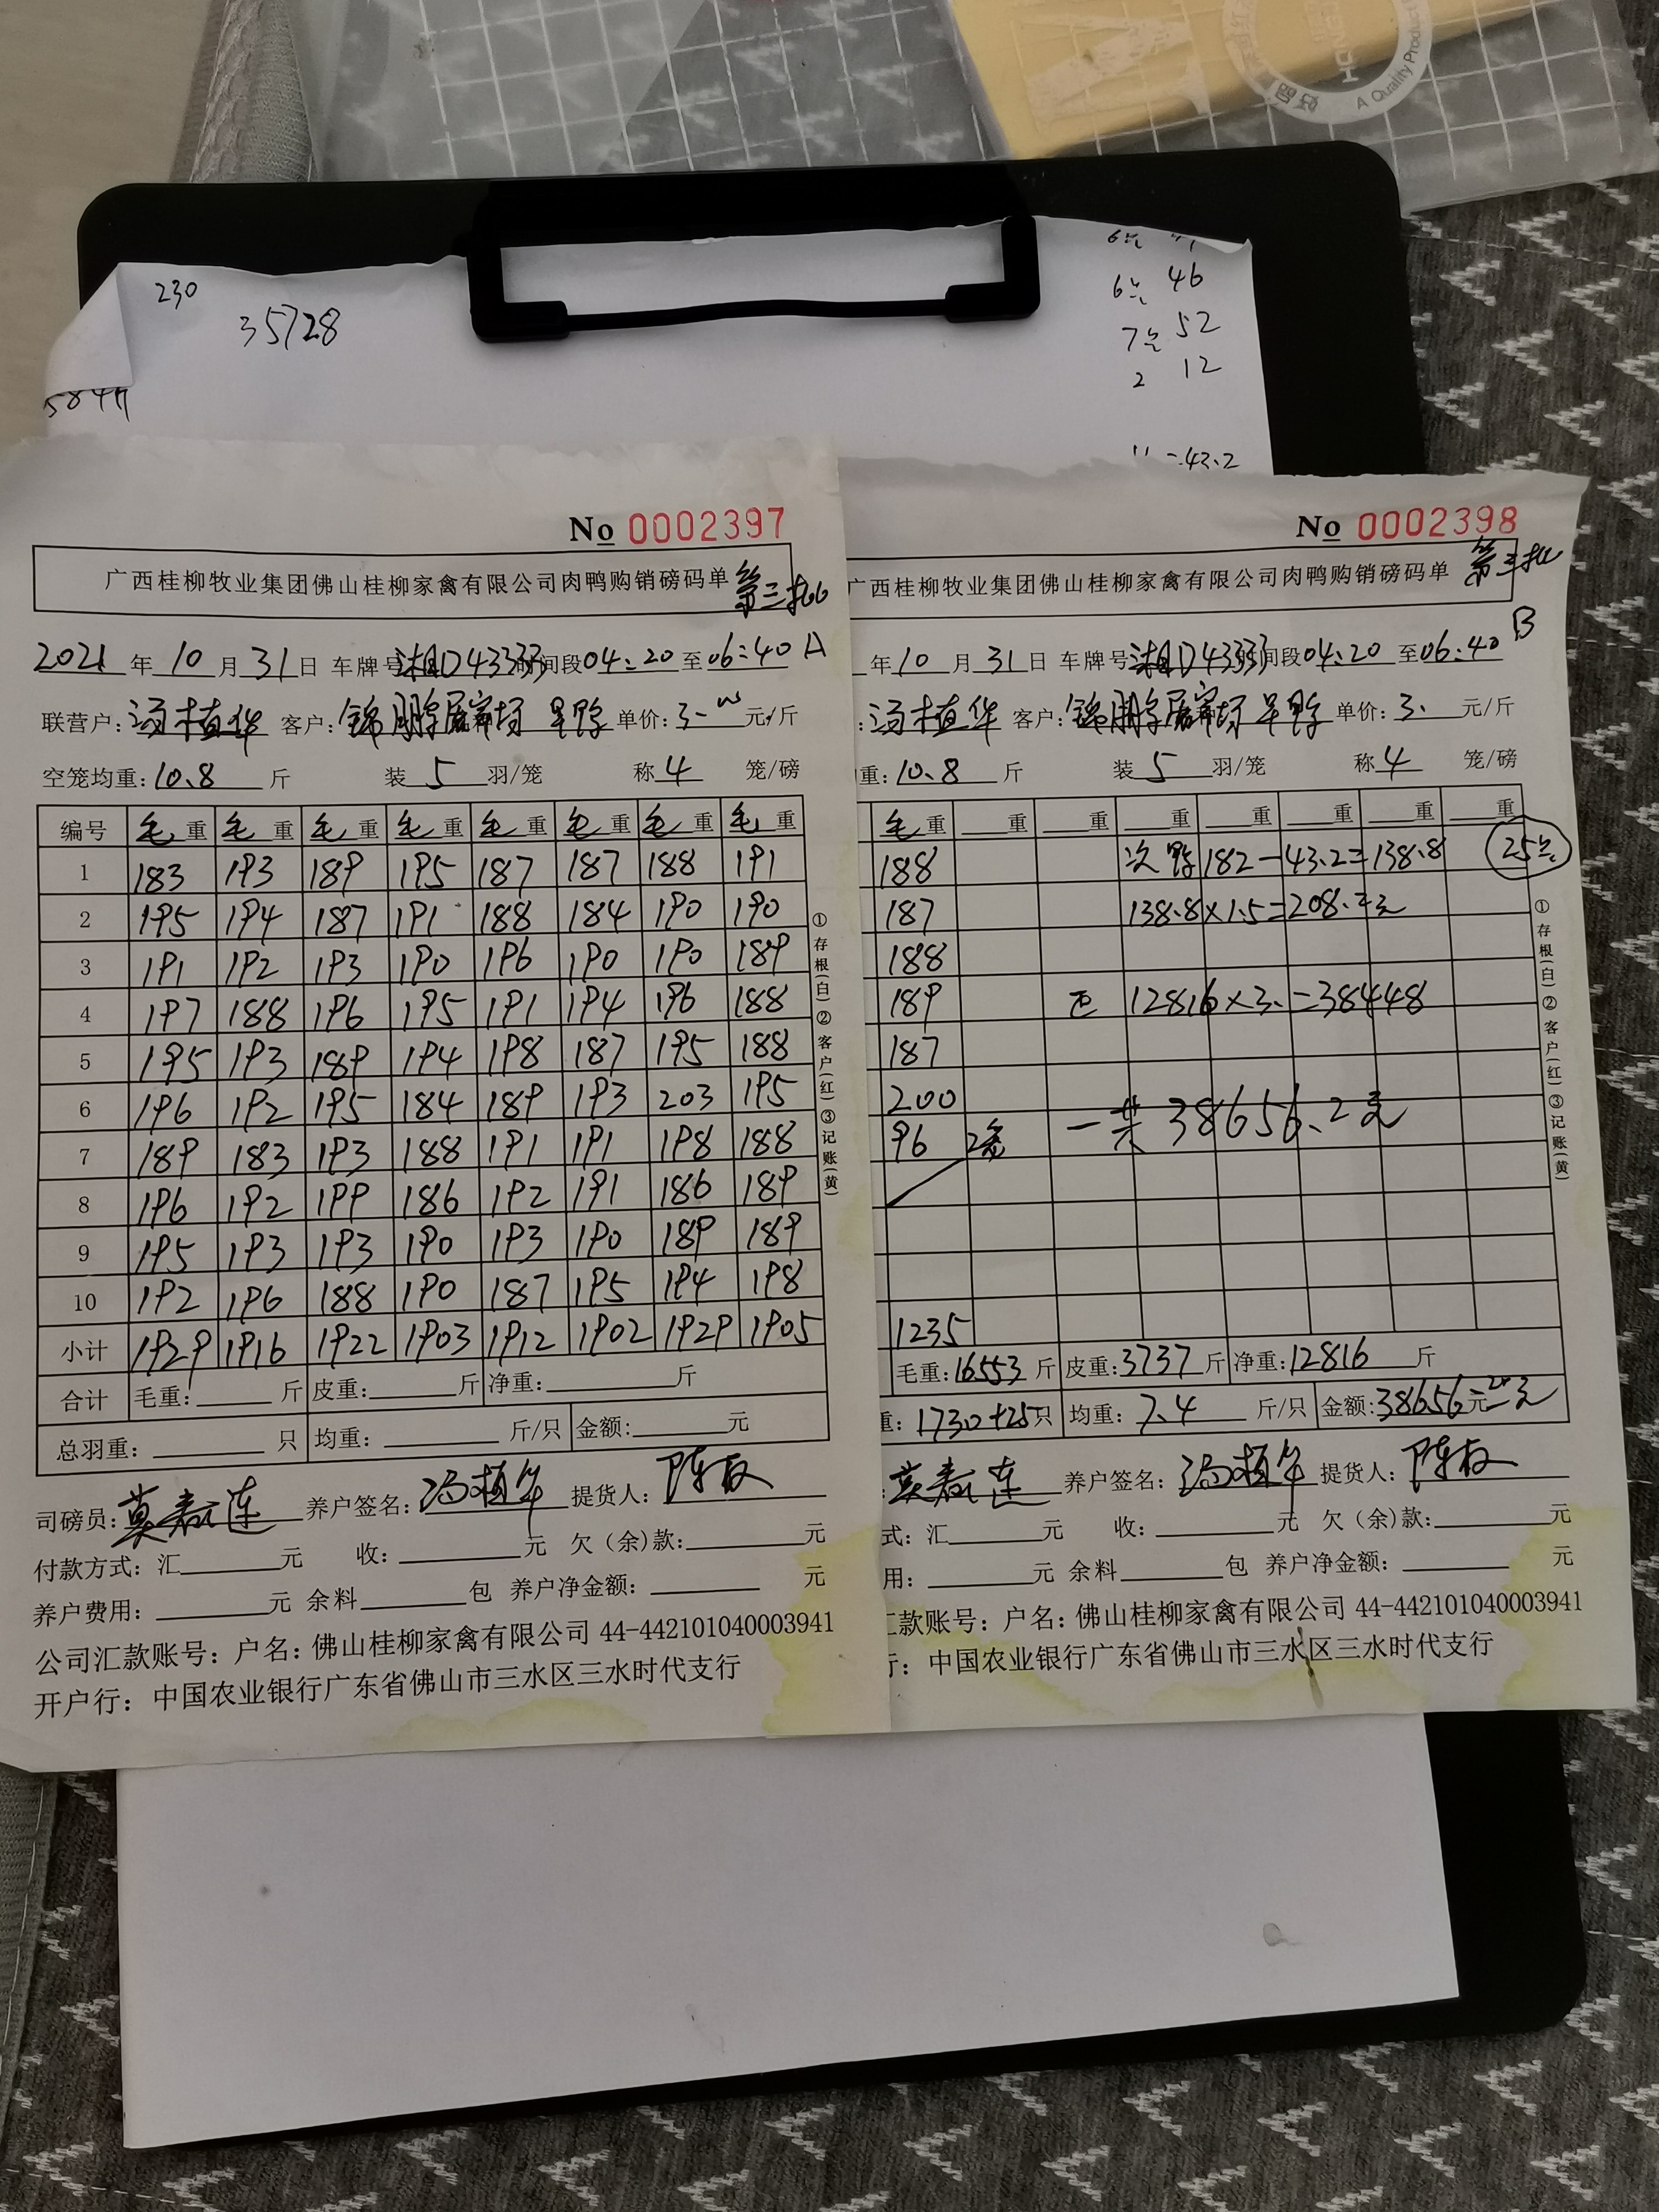 A Quality Product
230
35728
6只 46
7只 52
2 12
=43.2
No 0002397
广西桂柳牧业集团佛山桂柳家禽有限公司肉鸭购销磅码单 第三批
2021年10月31日 车牌号湘D43333时间段04:20至06:40 A
联营户:冯植华 客户:锦鹏屠宰场 单价:3.00元/斤
空笼均重:10.8斤 装5羽/笼 称4笼/磅
编号 毛重 毛重 毛重 毛重 毛重 毛重 毛重 毛重
1 183 193 189 195 187 187 188 191
2 195 194 187 191 188 184 190 190
3 191 192 193 190 196 190 190 189
4 197 188 196 195 191 194 196 188
5 195 193 189 194 198 187 195 188
6 196 192 195 184 189 193 203 195
7 189 183 193 188 191 191 198 188
8 196 192 199 186 192 191 186 189
9 195 193 193 190 193 190 189 189
10 192 196 188 190 187 195 194 198
小计 1929 1916 1922 1903 1912 1902 1929 1905
合计 毛重:斤 皮重:斤 净重:斤
总羽重:只 均重:斤/只 金额:元
司磅员:莫春连 养户签名:冯植华 提货人:陈权
付款方式:汇元 收:元 欠(余)款:元
养户费用:元 余料包 养户净金额:元
公司汇款账号:户名:佛山桂柳家禽有限公司 44-442101040003941
开户行:中国农业银行广东省佛山市三水区三水时代支行
①存根(白)②客户(红)③记账(黄)
No 0002398
广西桂柳牧业集团佛山桂柳家禽有限公司肉鸭购销磅码单 第三批
年10月31日 车牌号湘D43333时间段04:20至06:40 B
:冯植华 客户:锦鹏屠宰场 单价:3.元/斤
重:10.8斤 装5羽/笼 称4笼/磅
毛重 重 重 重 重 重 重 重
188 次鸭 182-43.2=138.8 25只
187 138.8×1.5=208.2元
188
189 正 12816×3.=38448
187
200 一共38656.2元
96 2笼
1235
毛重:16553斤 皮重:3737斤 净重:12816斤
重:1730+25只 均重:7.4斤/只 金额:38656元
莫春连 养户签名:冯植华 提货人:陈权
式:汇元 收:元 欠(余)款:元
用:元 余料包 养户净金额:元
汇款账号:户名:佛山桂柳家禽有限公司 44-442101040003941
行:中国农业银行广东省佛山市三水区三水时代支行
①存根(白)②客户(红)③记账(黄)